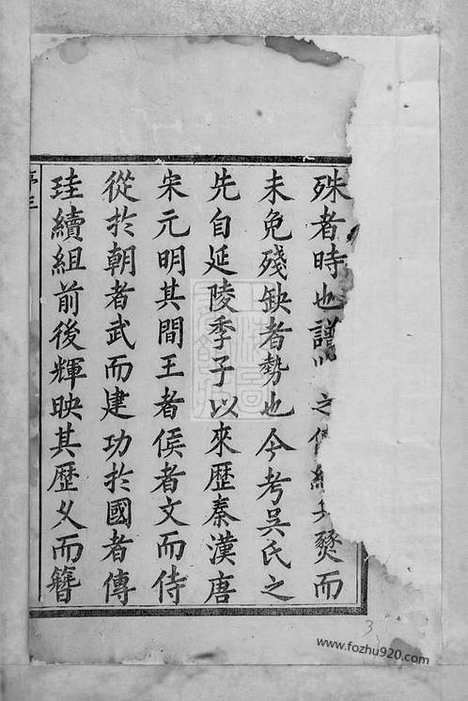 殊者時也譜之燹而
未免殘缺者勢也今考吳氏之
先自延陵季子以來歷秦漢唐
宋元明其間王者侯者文而侍
從於朝者武而建功於國者傳
珪續組前後輝映其歷久而簪
序三
3
www.fozhu920.com